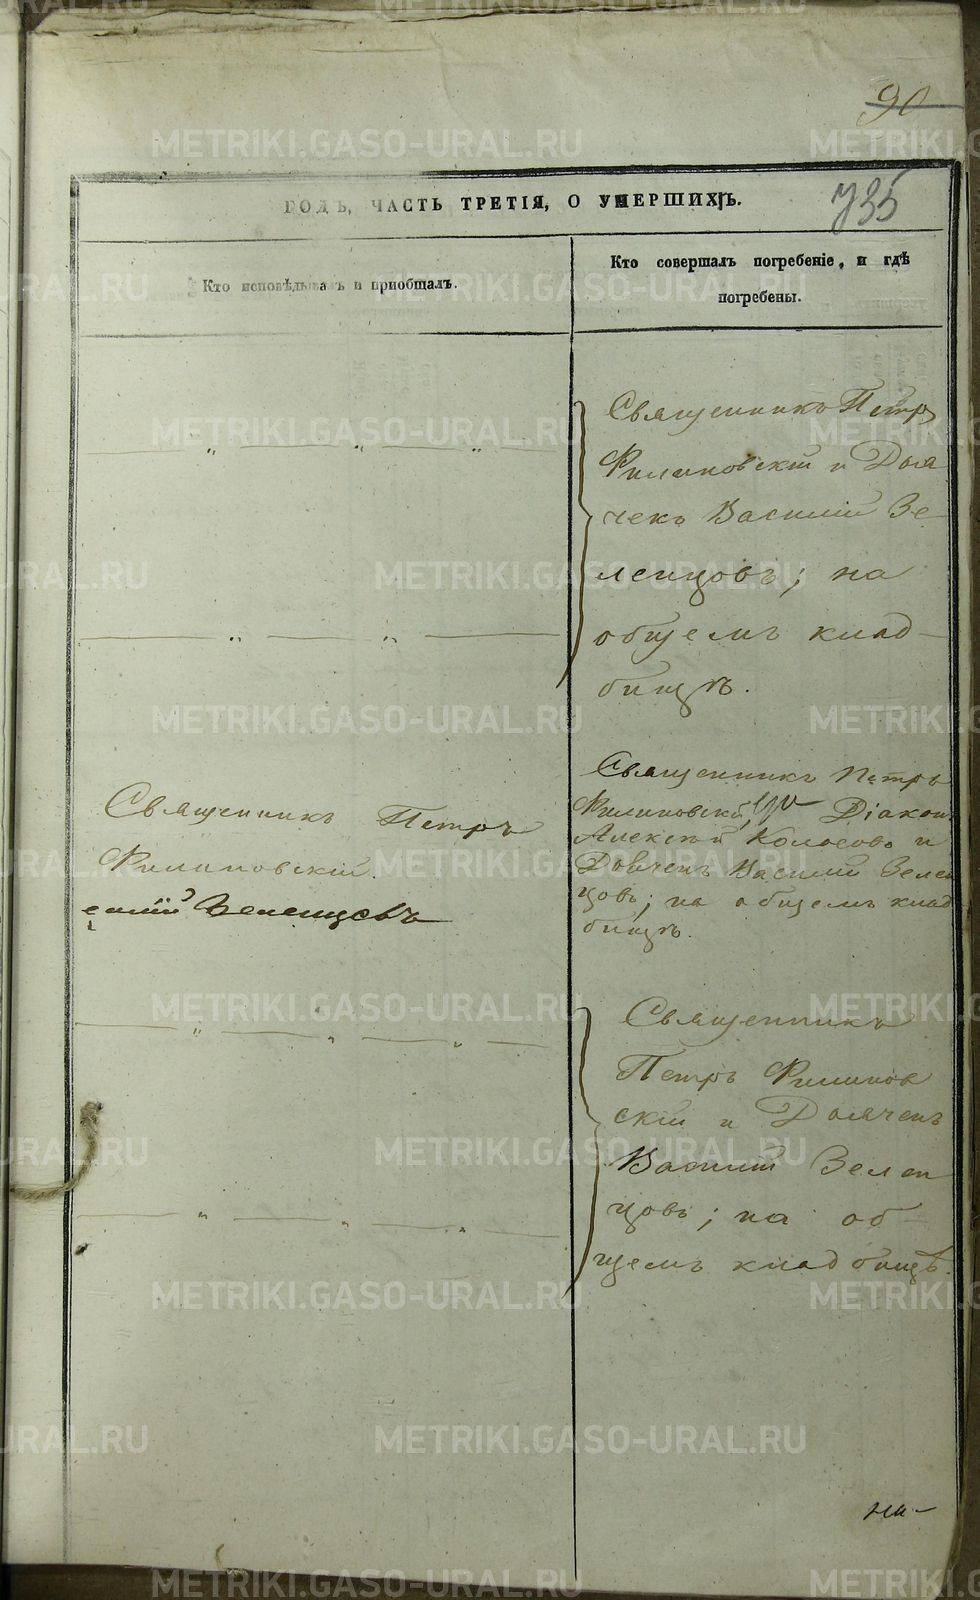 90
735
ГОДЪ, ЧАСТЬ ТРЕТІЯ, О УМЕРШИХЪ.
Кто исповѣдывалъ и пріобщалъ.
Кто совершалъ погребеніе, и гдѣ
погребены.
Священникъ Петръ
Филиповскій и Дья
чекъ Василій Зе-
ленцовъ; на
общемъ клад-
бищѣ.
Священникъ Петръ
Филиповскій.
силій Зеленцовъ
Священникъ Петръ
Филиповскій, Діаконъ
Алексѣй Колосовъ и
Дьячекъ Василій Зелен
цовъ; на общемъ клад
бищѣ.
Священникъ
Петръ Филипов
скій и Дьячекъ
Василій Зелен
цовъ; на об-
щемъ кладбищѣ.
METRIKI.GASO-URAL.RU